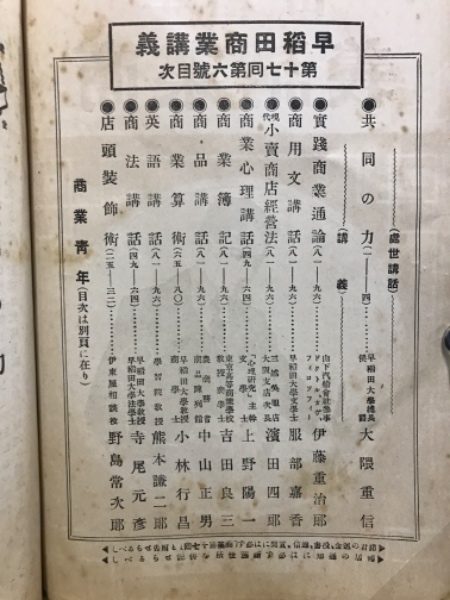 早稲田商業講義
第十七回第六號目次
(處世講話)
●共同の力(一—四) 早稻田大學總長 侯爵 大隈重信
(講義)
●實踐商業通論(八一—九六) 山下汽船會社理事 伊藤重治郎
●商用文講話(八一—九六) 早稻田大學文學士 服部嘉香
●現代小賣商店經營法(八一—九六) 三越吳服店大阪支店次長 濱田四郎
●商業心理講話(四九—六四) 「心理研究」主幹 文學士 上野陽一
●商業簿記(八一—九六) 東京高等商業學校教授商學士 吉田良三
●商品講話(八一—九六) 農商務省商品陳列館 中山正男
●商業算術(六五—八〇) 早稻田大學教授 商學士 小林行昌
●英語講話(八一—九六) 學習院教授 熊本謙二郎
●商法講話(四九—六四) 早稻田大學教授 早稻田大學法學士 寺尾元彦
●店頭裝飾術(二五—三二) 伊東屋相談役 野島常次郎
商業青年(目次は別頁に在り)